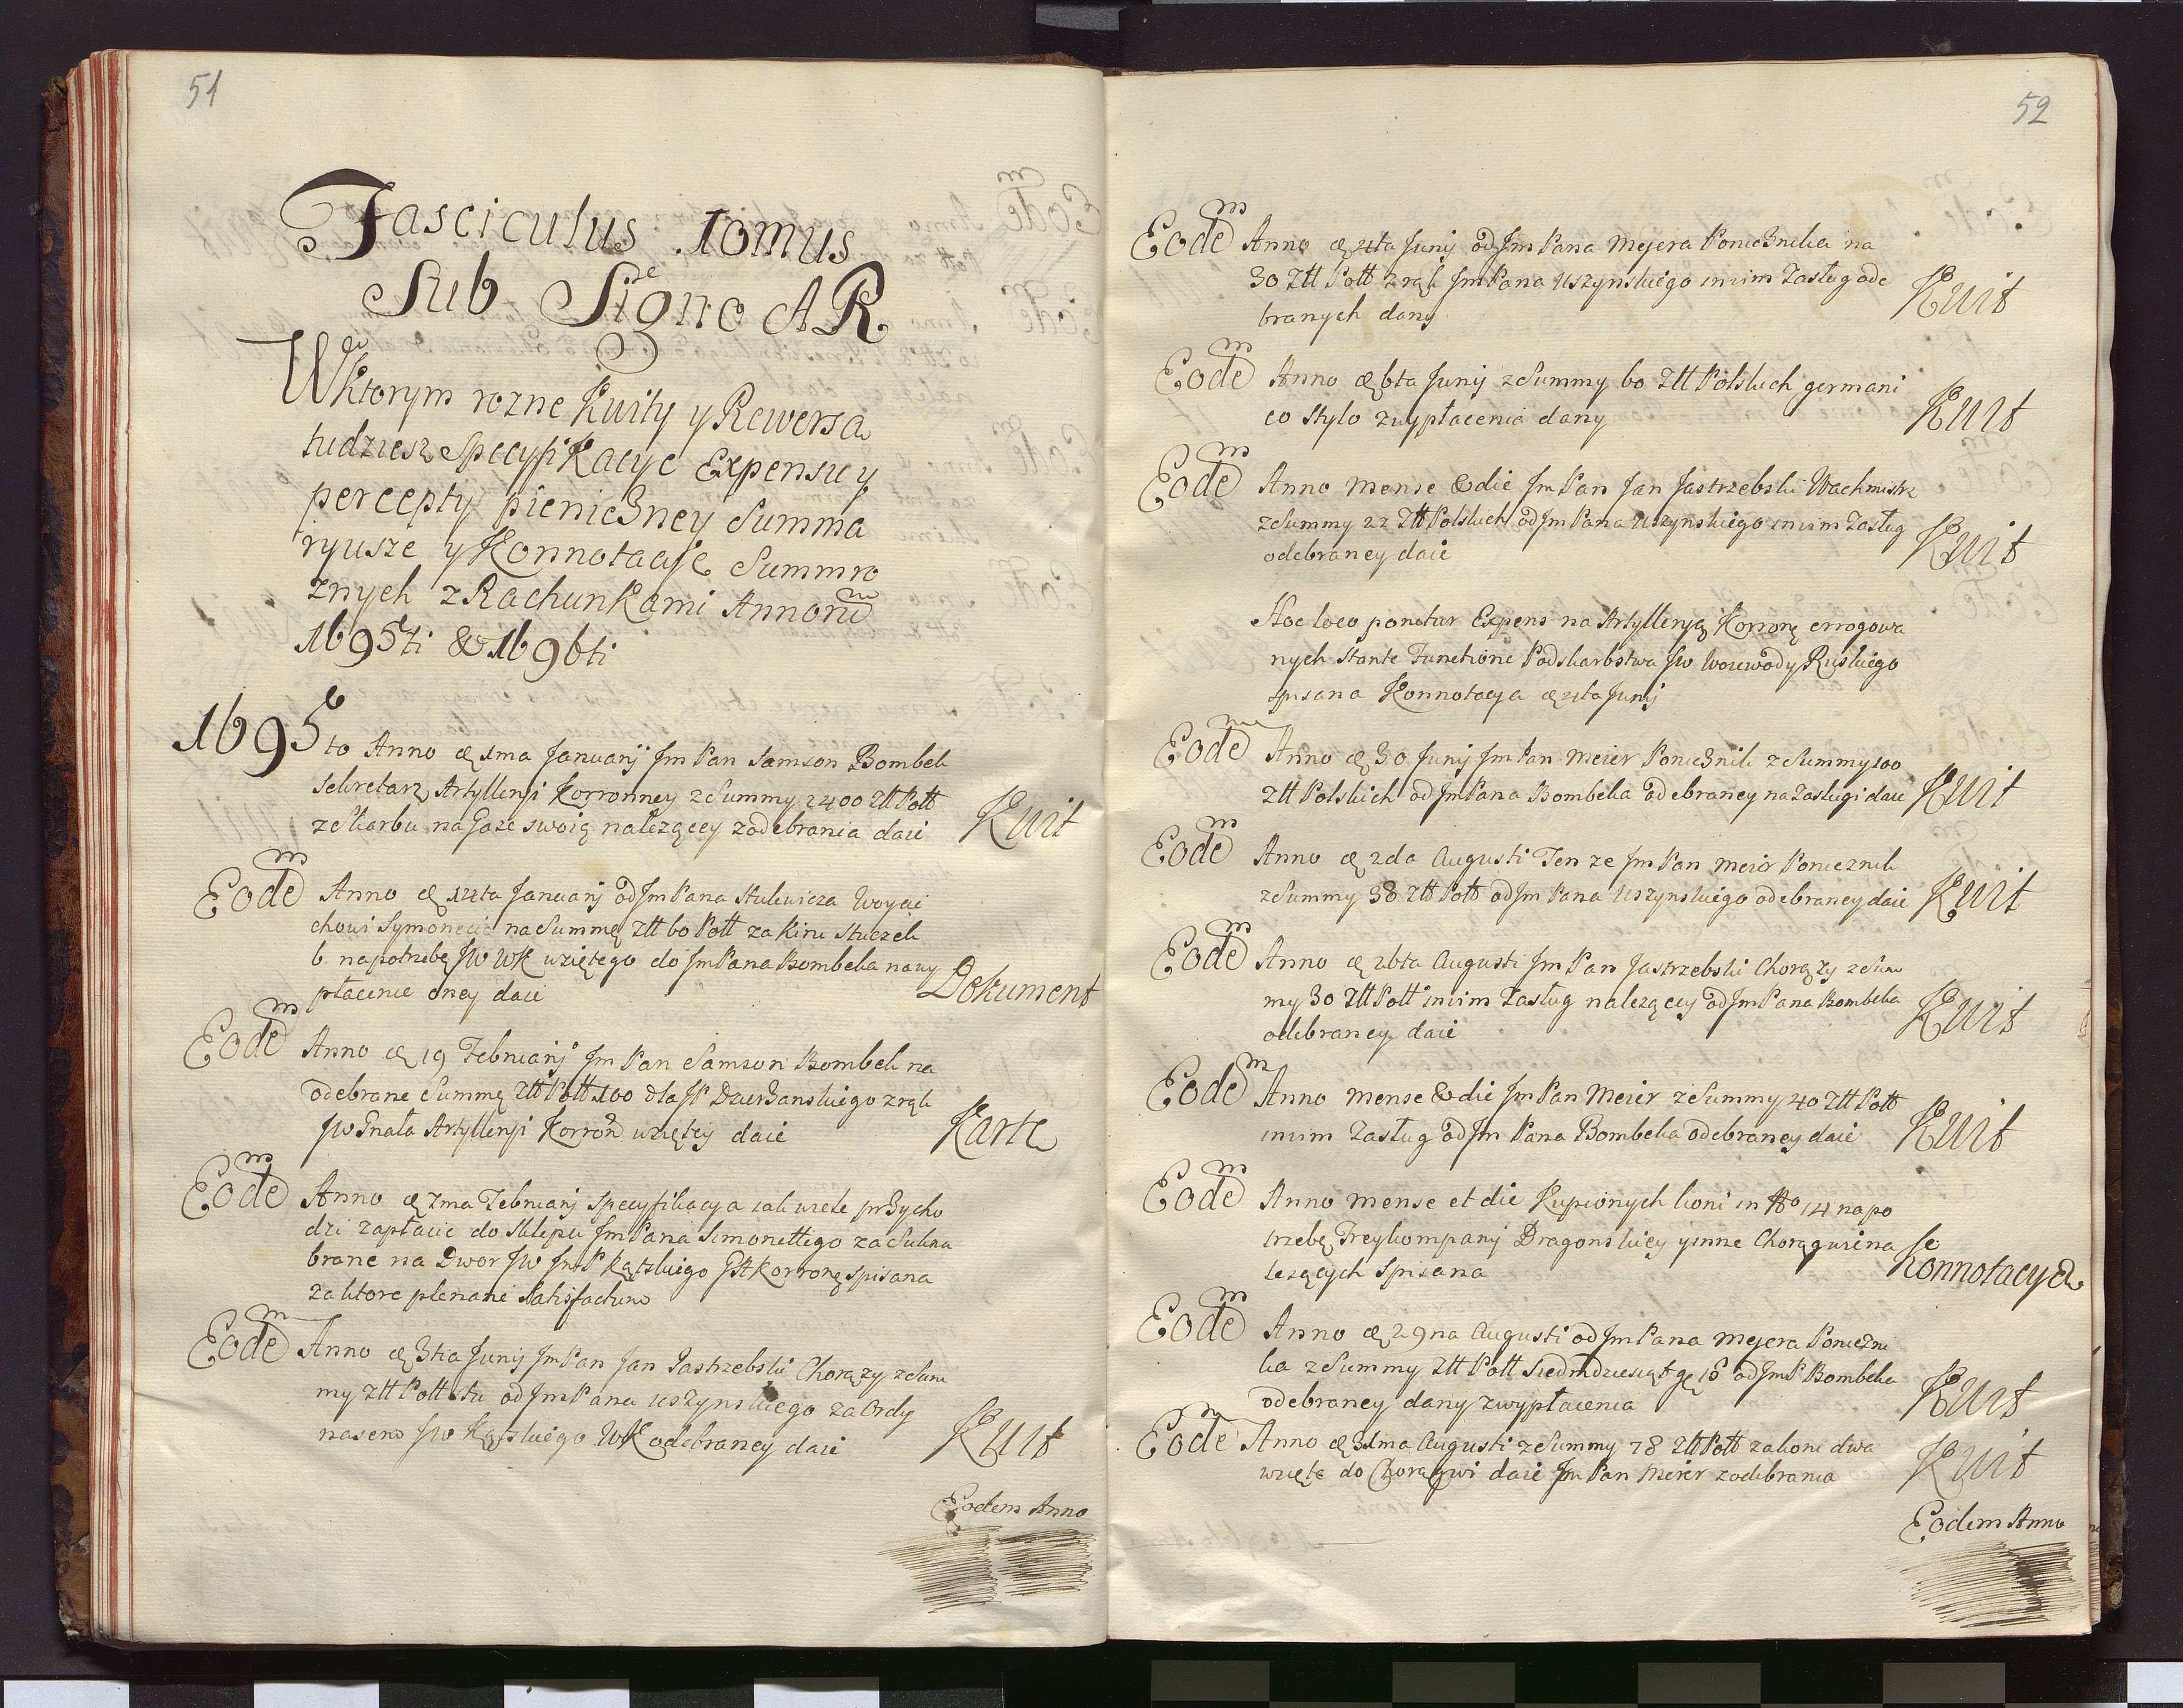 51
Fasciculus 1omus
Sub Signo AR
W ktorym rozne Kwity y Rewersa
tudziesz Specyfikacye Expensu y
percepty pienieżney Summa
ryusze y Konnotacye Summ ro
znych z Rachunkami Annorum
1695ti & 1696ti
1695to Anno & 1ma Januarij Jm Pan Samson Bombek
Sekretarz Artylleryi Korronney z Summy 2400 Złł Poll
ze Skarbu na Gaze swoią nalezącey z odebrania daie Kwit
Eodem Anno & 14ta Januarij od Jm Pana Stulewicza Woycie
chowi Symonecie na Summę Złł 60 Poll za Kiru Stuczek
6 na potrzebę JW WK wziętego do Jm Pana Bombeka na wy
płacenie oney daie Dokument
Eodem Anno & 19 Februarij Jm Pan Samson Bombek na
odebrane Summę Złł Poll 100 dla JP Dzierżanskiego z rąk
JW Gnała Artylleryi Korron wziętey daie Karte
Eodem Anno & 7ma Februarij Specyfikacya iak wiele przycho
dzi zapłacić do Sklepu Jm Pana Simonettego za Sukna
brane na Dwor JW JmP Kątskiego GA Korronę spisana
za ktore plenarie Satisfactum
Eodem Anno & 3tia Junij Jm Pan Jan Jastrzebski Chorązy z Sum
my Złł Poll stu od Jm Pana Uszynskiego za Ordy
nasem JW Kątskiego WK odebraney daie Kwit
Eodem Anno
52
Eodem Anno & 4ta Junij od Jm Pana Mejera Poniesnika na
30 Złł Poll z rąk Jm Pana Uszynskiego in vim Zasług ode
branych dany Kwit
Eodem Anno & 6ta Junij z Summy 60 Złł Polskich germani
co stylo z wypłacenia dany Kwit
Eodem Anno Mense & die Jm Pan Jan Jastrzebski Wachmistrz
z Summy 22 Złł Polskich od Jm Pana Uszynskiego in vim Zasług
odebraney daie Kwit
Hoc loco ponetur Expens na Artylleryą Korronę errogowa
nych Stante Functione Podskarbstwa JW Woiewody Ruskiego
spisana Konnotacya & 21ta Junij
Eodem Anno & 30 Junij Jm Pan Meier Ponieżnik z Summy 100
Złł Polskich od Jm Pana Bombeka odebraney na Zasługi daie Kwit
Eodem Anno & 2da Augusti Ten ze Jm Pan Meier Ponieznik
z Summy 38 Złł Poll od Jm Pana Uszynskiego odebraney daie Kwit
Eodem Anno & 26ta Augusti Jm Pan Jastrzebski Chorązy z Sum
my 30 Złł Poll in vim Zasług nalezącey od Jm Pana Bombeka
odebraney daie Kwit
Eodem Anno Mense & die Jm Pan Meier z Summy 40 Złł Poll
in vim Zasług od Jm Pana Bombeka odebraney daie Kwit
Eodem Anno Mense et die Kupionych koni in No 14 na po
trzebę Freykompanij Dragonskiey y inne Chorągwie na
lezących spisana Konnotacya
Eodem Anno & 29na Augusti od Jm Pana Mejera Ponieżni
ka z Summy Złł Poll siedmdziesiąt gr 15 od JmP Bombeka
odebraney dany z wypłacenia Kwit
Eodem Anno & 31ma Augusti z Summy 78 Złł Poll za koni dwa
wzięte do Chorągwi daie Jm Pan Meier z odebrania Kwit
Eodem Anno